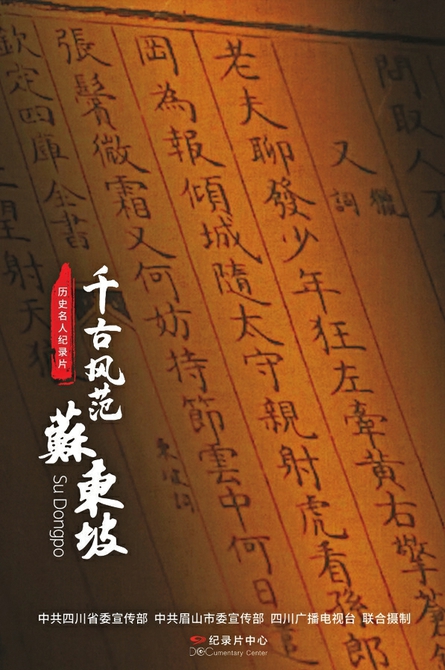 問取人
又
獵
詞
老夫聊發少年狂左牽黄右擎
岡為報傾城隨太守親射虎看孫郎
張鬢微霜又何妨持節雲中何日
欽定四庫全書
東坡詞
望射天
历史名人纪录片
千古风范
蘇東坡
Su Dongpo
中共四川省委宣传部 中共眉山市委宣传部 四川广播电视台 联合摄制
纪录片中心
DOCumentary Center